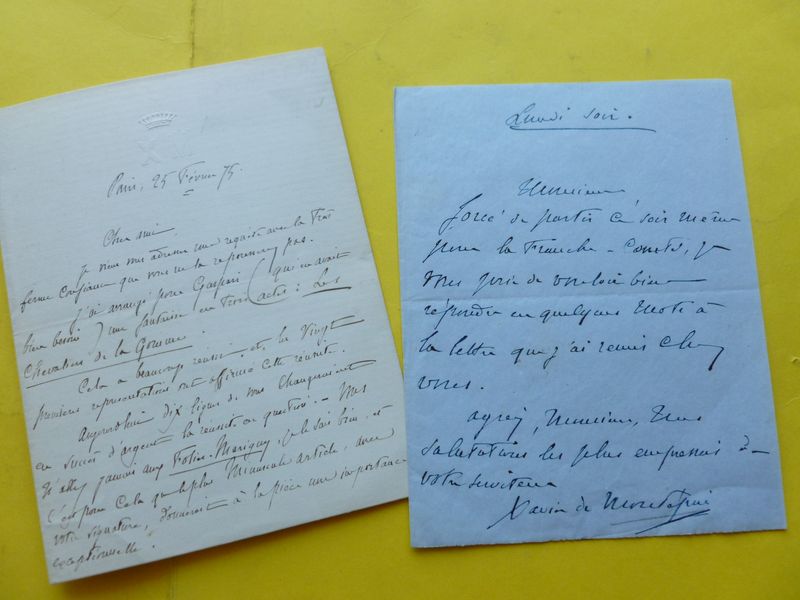 Paris, 25 Février 75.
Cher ami
Je viens vous adresser une requête avec la très
ferme confiance que vous ne la repousserez pas.
J'ai arrangé pour Gaspari (qui en avait
bien besoin) une fantaisie en trois actes : Les
Chevaliers de la Gomme.
Cela a beaucoup réussi et les vingt
premières représentations ont affirmé cette réussite.
Aujourdhui dix lignes de vous changeraient
en succès d'argent la réussite en question. Vous
n'allez jamais aux Folies-Marigny, je le sais bien, et
c'est pour cela que le plus minuscule article, avec
votre signature, donnerait à la pièce une importance
exceptionnelle.
Lundi soir.
Monsieur
Forcé de partir ce soir même
pour la Franche-Comté, je
vous prie de vouloir bien
répondre en quelques mots à
la lettre que j'ai remis chez
vous.
Agréez, Monsieur, mes
salutations les plus empressées
votre serviteur
Xavier de Montépin